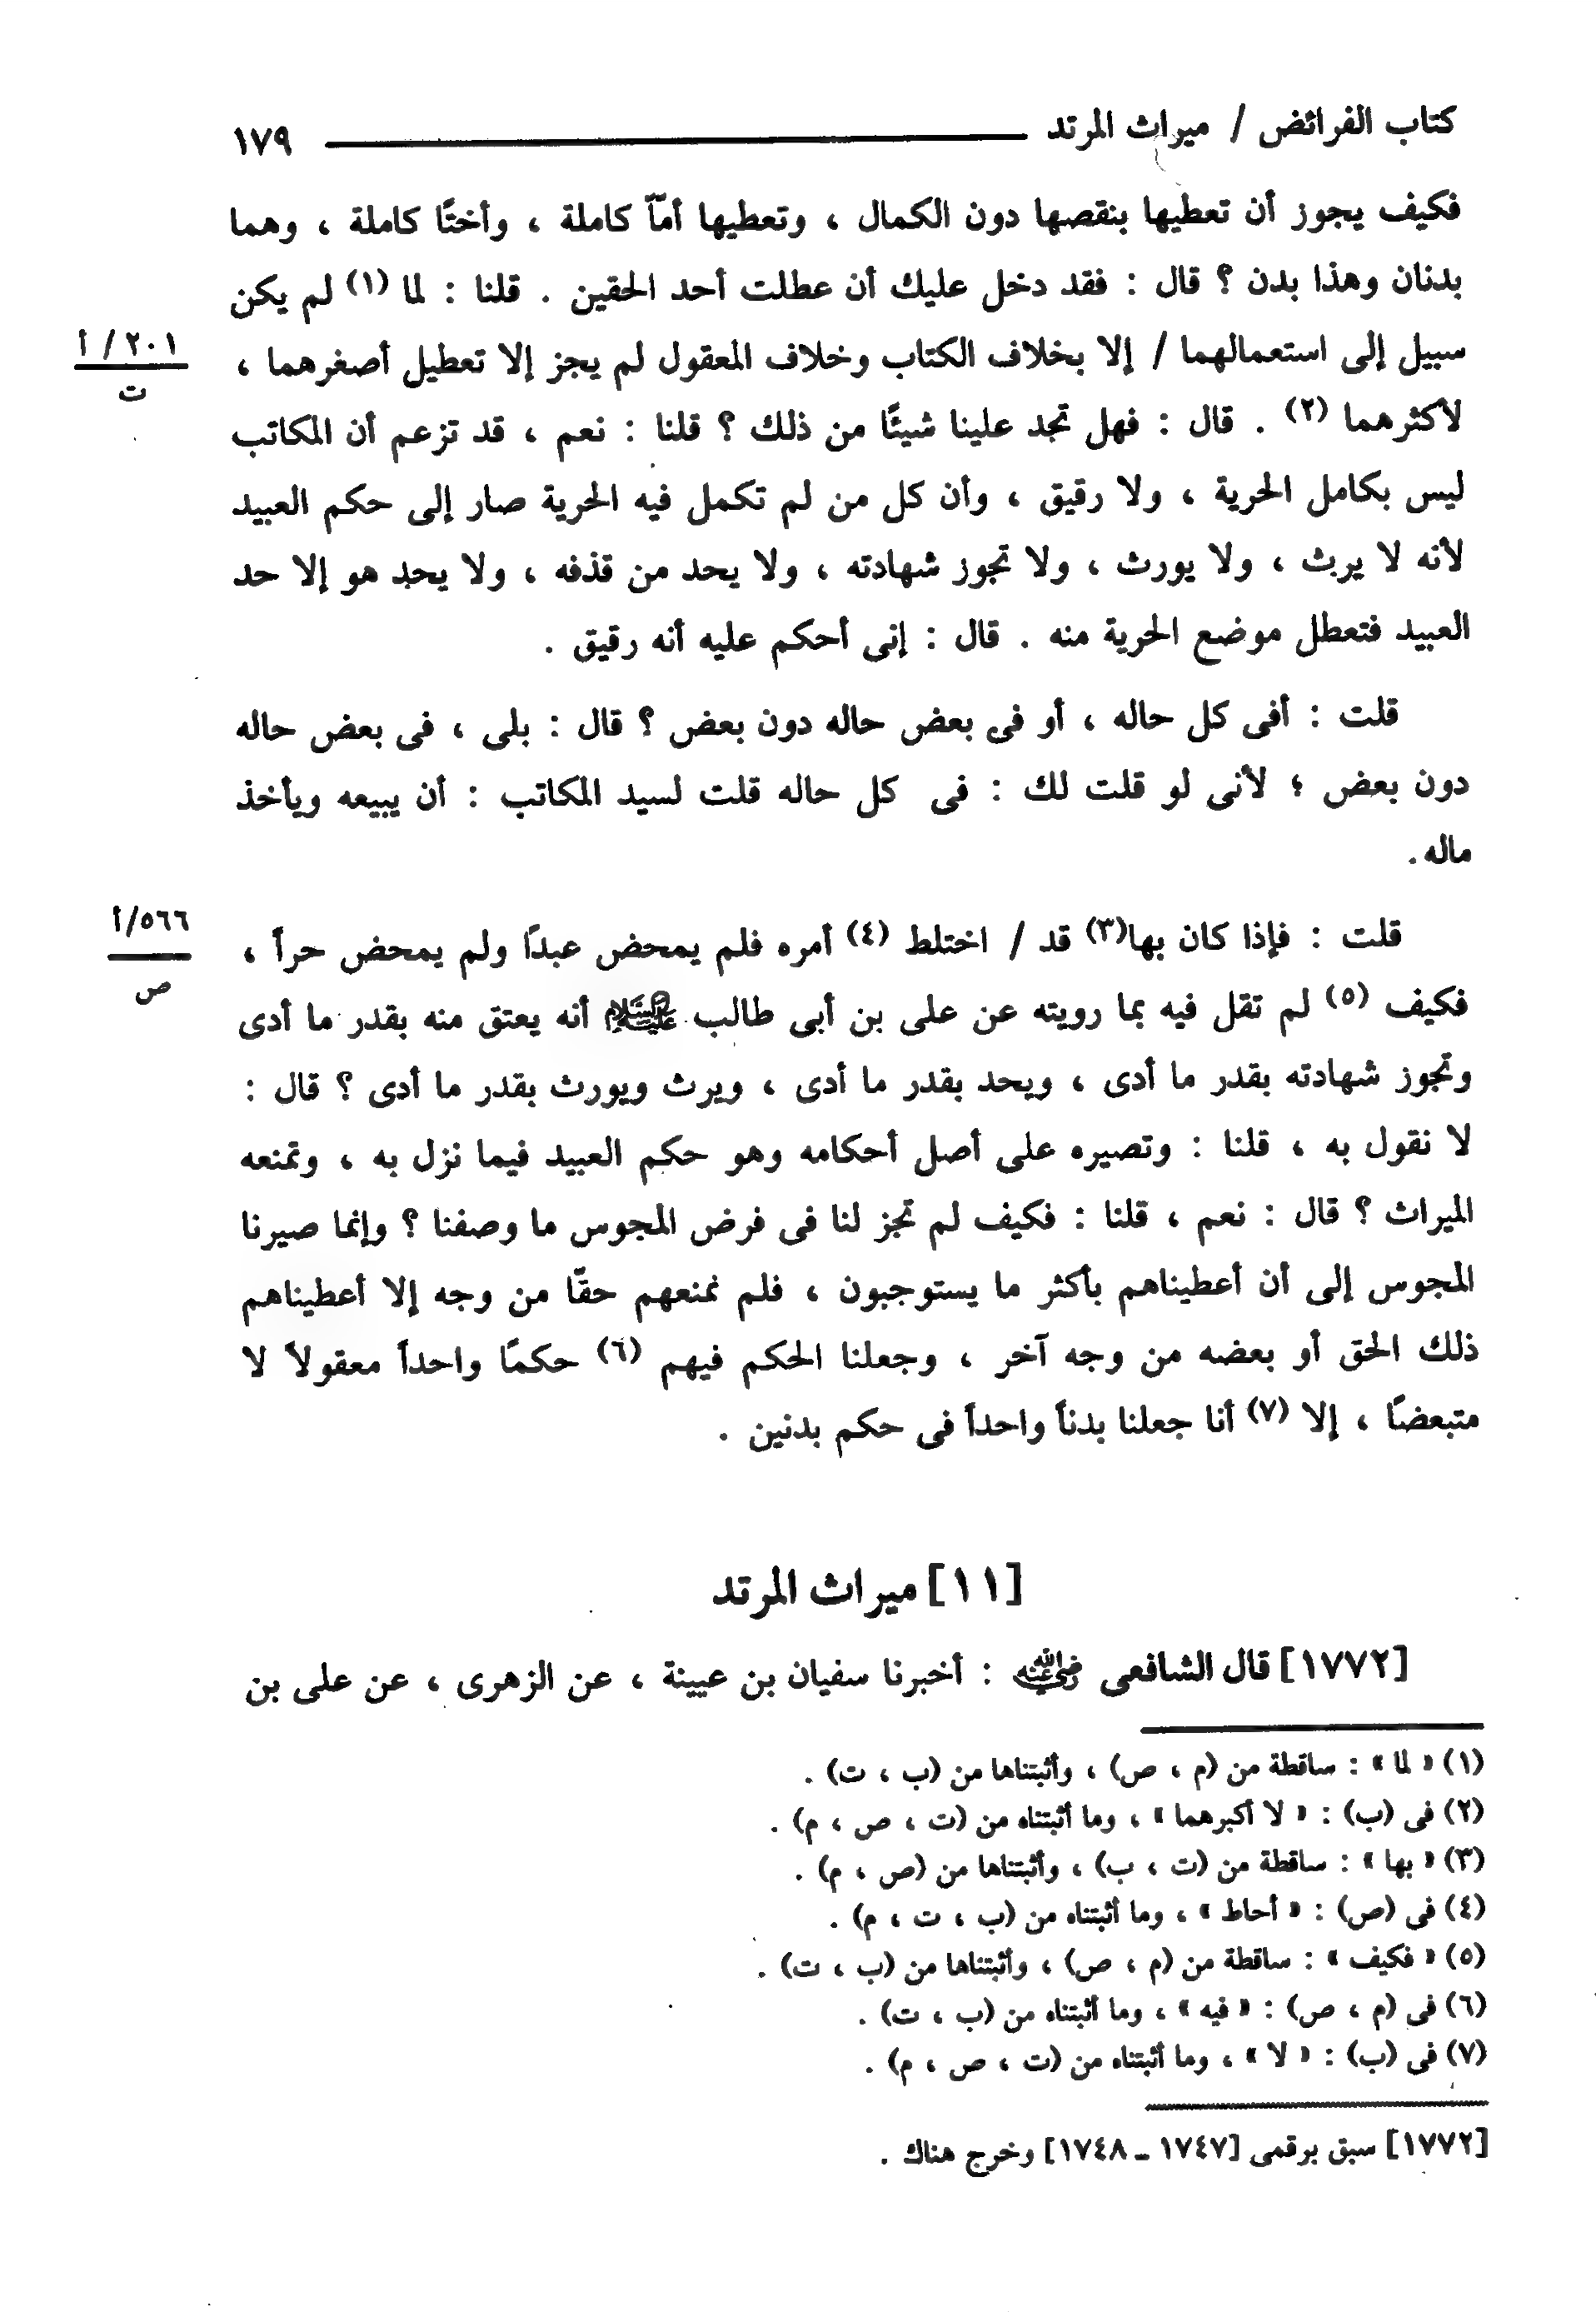 كتاب الفرائض / ميراث المرتد ١٧٩
فكيف يجوز أن تعطيها بنقصها دون الكمال ، وتعطيها أمّاً كاملة ، وأختًا كاملة ، وهما
بدنان وهذا بدن ؟ قال : فقد دخل عليك أن عطلت أحد الحقين . قلنا : لما (١) لم يكن
سبيل إلى استعمالهما / إلا بخلاف الكتاب وخلاف المعقول لم يجز إلا تعطيل أصغرهما ،
٢٠١ / أ
ت
لأكثرهما (٢) . قال : فهل تجد علينا شيئًا من ذلك ؟ قلنا : نعم ، قد تزعم أن المكاتب
ليس بكامل الحرية ، ولا رقيق ، وأن كل من لم تكمل فيه الحرية صار إلى حكم العبيد
لأنه لا يرث ، ولا يورث ، ولا تجوز شهادته ، ولا يحد من قذفه ، ولا يحد هو إلا حد
العبيد فتعطل موضع الحرية منه . قال : إنى أحكم عليه أنه رقيق .
قلت : أفى كل حاله ، أو فى بعض حاله دون بعض ؟ قال : بلى ، فى بعض حاله
دون بعض ؛ لأنى لو قلت لك : فى كل حاله قلت لسيد المكاتب : أن يبيعه ويأخذ
ماله .
قلت : فإذا كان بها(٣) قد / اختلط (٤) أمره فلم يمحض عبدًا ولم يمحض حراً ،
٥٦٦/أ
ص
فكيف (٥) لم تقل فيه بما رويته عن على بن أبى طالب عليه السلام أنه يعتق منه بقدر ما أدى
وتجوز شهادته بقدر ما أدى ، ويحد بقدر ما أدى ، ويرث ويورث بقدر ما أدى ؟ قال :
لا نقول به ، قلنا : وتصيره على أصل أحكامه وهو حكم العبيد فيما نزل به ، وتمنعه
الميراث ؟ قال : نعم ، قلنا : فكيف لم تجز لنا فى فرض المجوس ما وصفنا ؟ وإنما صيرنا
المجوس إلى أن أعطيناهم بأكثر ما يستوجبون ، فلم نمنعهم حقّا من وجه إلا أعطيناهم
ذلك الحق أو بعضه من وجه آخر ، وجعلنا الحكم فيهم (٦) حكمًا واحداً معقولاً لا
متبعضًا ، إلا (٧) أنا جعلنا بدناً واحداً فى حكم بدنين .
[١١] ميراث المرتد
[١٧٧٢] قال الشافعى رضي الله عنه : أخبرنا سفيان بن عيينة ، عن الزهرى ، عن على بن
(١) « لما » : ساقطة من (م ، ص) ، وأثبتناها من (ب ، ت) .
(٢) فى (ب) : « لا أكبرهما » ، وما أثبتناه من (ت ، ص ، م) .
(٣) « بها » : ساقطة من (ت ، ب) ، وأثبتناها من (ص ، م) .
(٤) فى (ص) : « أحاط » ، وما أثبتناه من (ب ، ت ، م) .
(٥) « فكيف » : ساقطة من (م ، ص) ، وأثبتناها من (ب ، ت) .
(٦) فى (م ، ص) : « فيه » ، وما أثبتناه من (ب ، ت) .
(٧) فى (ب) : « لا » ، وما أثبتناه من (ت ، ص ، م) .
[١٧٧٢] سبق برقمى [١٧٤٧ ـ ١٧٤٨] وخرج هناك .